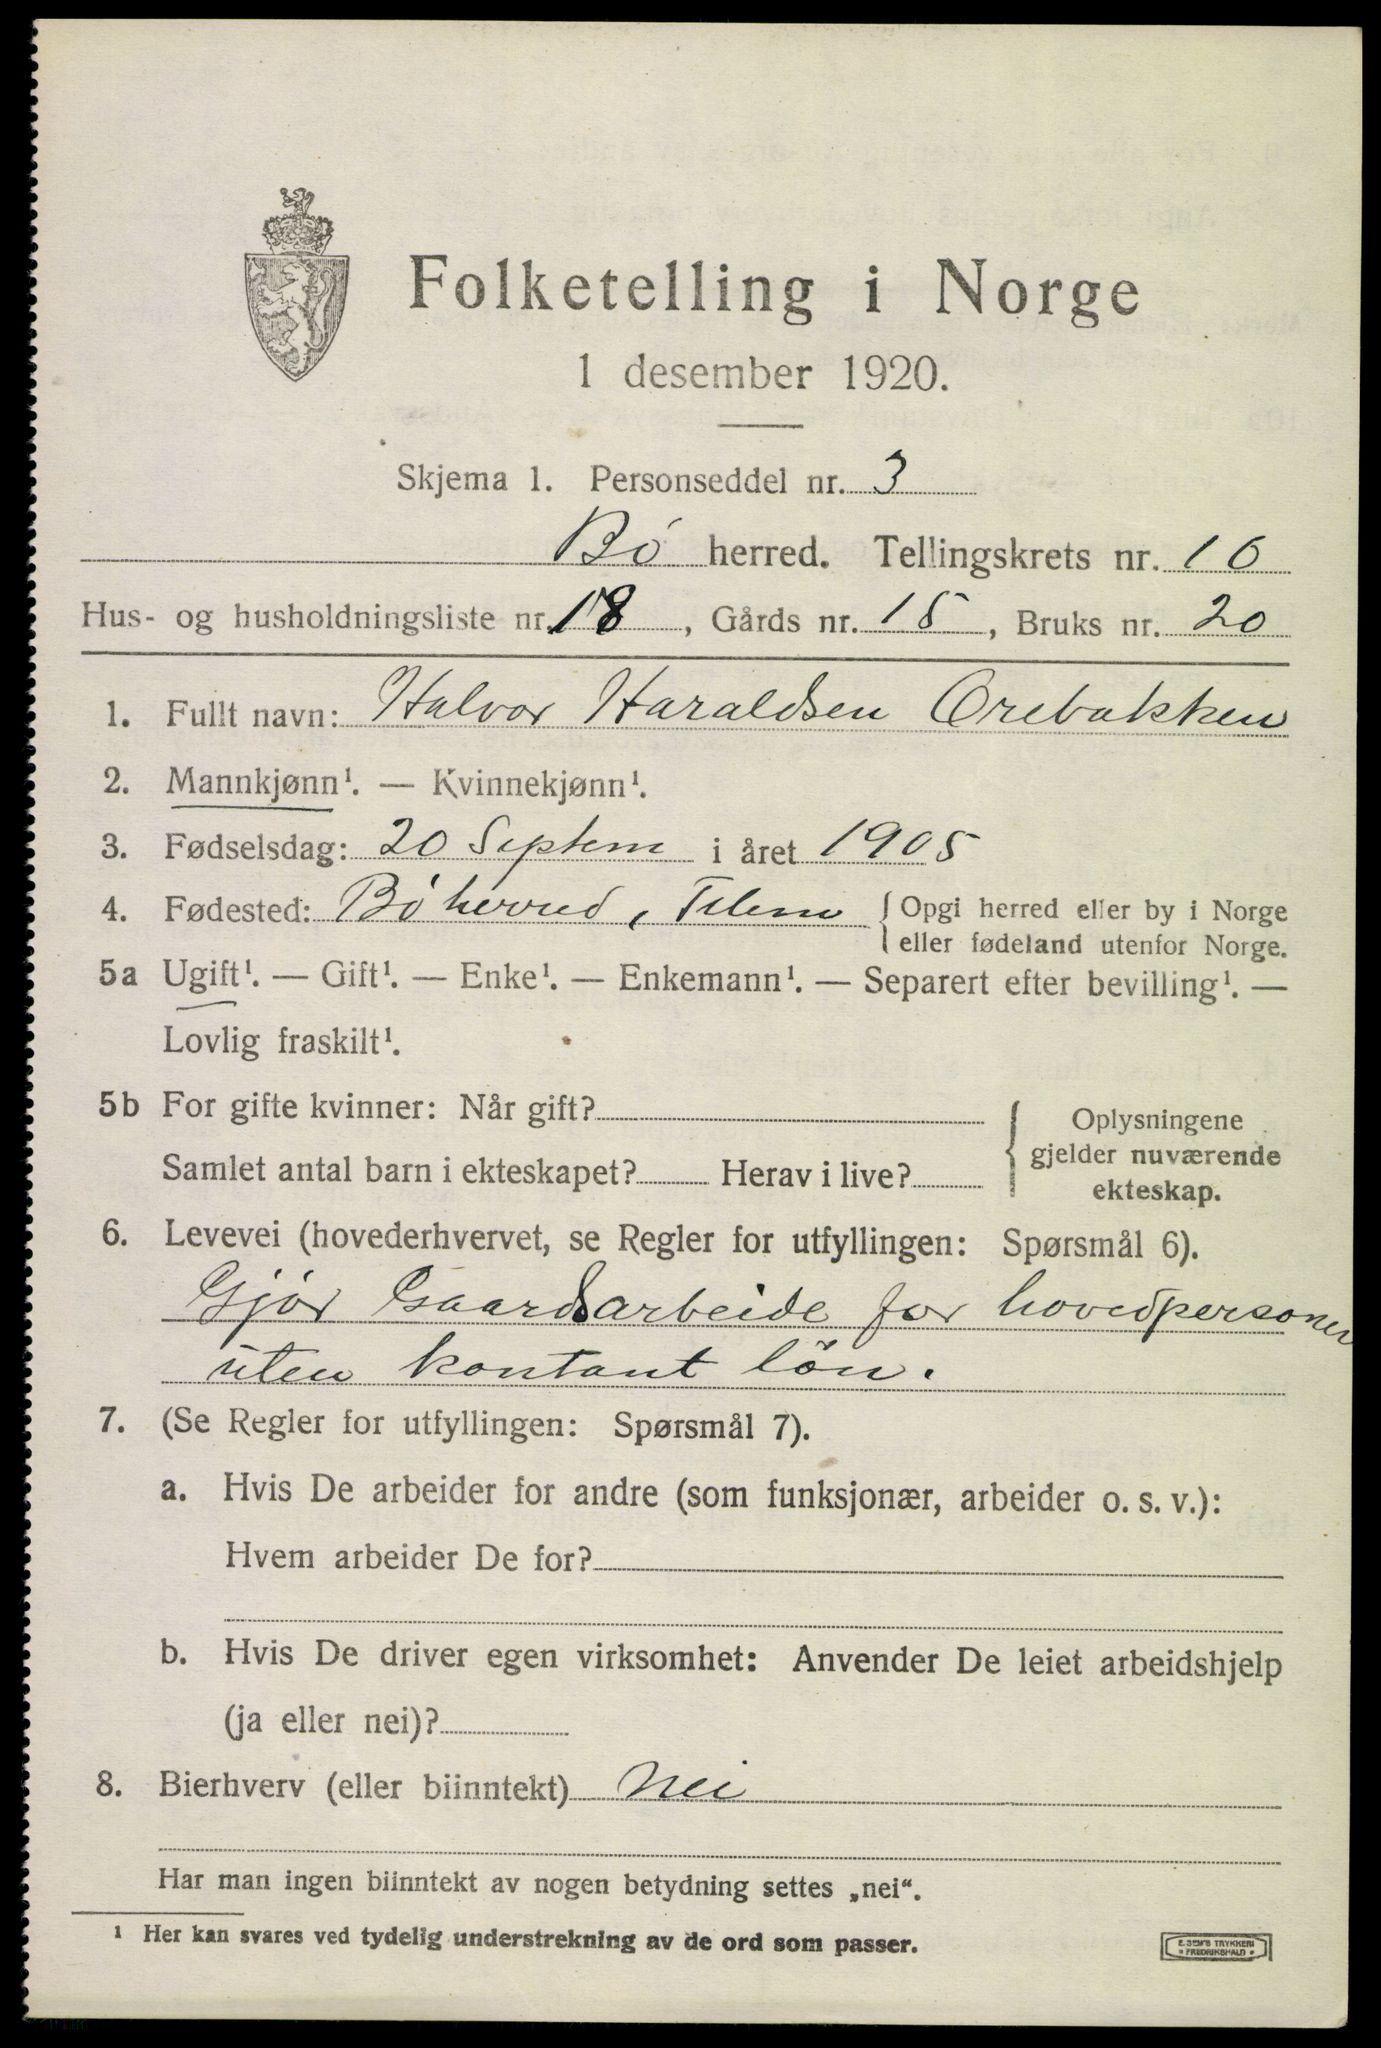 Folketelling i Norge
1 desember 1920.
Skjema 1. Personseddel nr. 3
Bö herred. Tellingskrets nr. 10
Hus- og husholdningsliste nr. 18, Gårds nr. 15, Bruks nr. 20
1. Fullt navn: Halvor Haraldsen Orebakken
2. Mannkjønn¹. — Kvinnekjønn¹.
3. Fødselsdag: 20 Septem i året 1905
4. Fødested: Bö herred, Telem { Opgi herred eller by i Norge
eller fødeland utenfor Norge.
5a Ugift¹. — Gift¹. — Enke¹. — Enkemann¹. — Separert efter bevilling¹. —
Lovlig fraskilt¹.
5b For gifte kvinner: Når gift?
Samlet antal barn i ekteskapet? Herav i live?
Oplysningene
gjelder nuværende
ekteskap.
6. Levevei (hovederhvervet, se Regler for utfyllingen: Spørsmål 6).
Gjör Gaardsarbeide for hovedpersonen
uten kontant lön.
7. (Se Regler for utfyllingen: Spørsmål 7).
a. Hvis De arbeider for andre (som funksjonær, arbeider o. s. v.):
Hvem arbeider De for?
b. Hvis De driver egen virksomhet: Anvender De leiet arbeidshjelp
(ja eller nei)?
8. Bierhverv (eller biinntekt) Nei
Har man ingen biinntekt av nogen betydning settes „nei“.
¹ Her kan svares ved tydelig understrekning av de ord som passer.
E. SEM'S TRYKKERI
• FREDRIKSHALD •